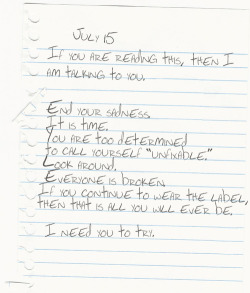 JULY 15
IF YOU ARE READING THIS, THEN I
AM TALKING TO YOU.
END YOUR SADNESS.
IT IS TIME.
YOU ARE TOO DETERMINED
TO CALL YOURSELF "UNFIXABLE."
LOOK AROUND.
EVERYONE IS BROKEN.
IF YOU CONTINUE TO WEAR THE LABEL,
THEN THAT IS ALL YOU WILL EVER BE.
I NEED YOU TO TRY.